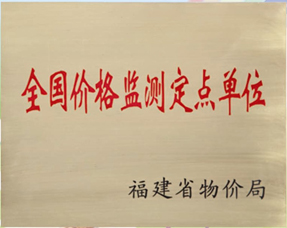 全国价格监测定点单位
福建省物价局